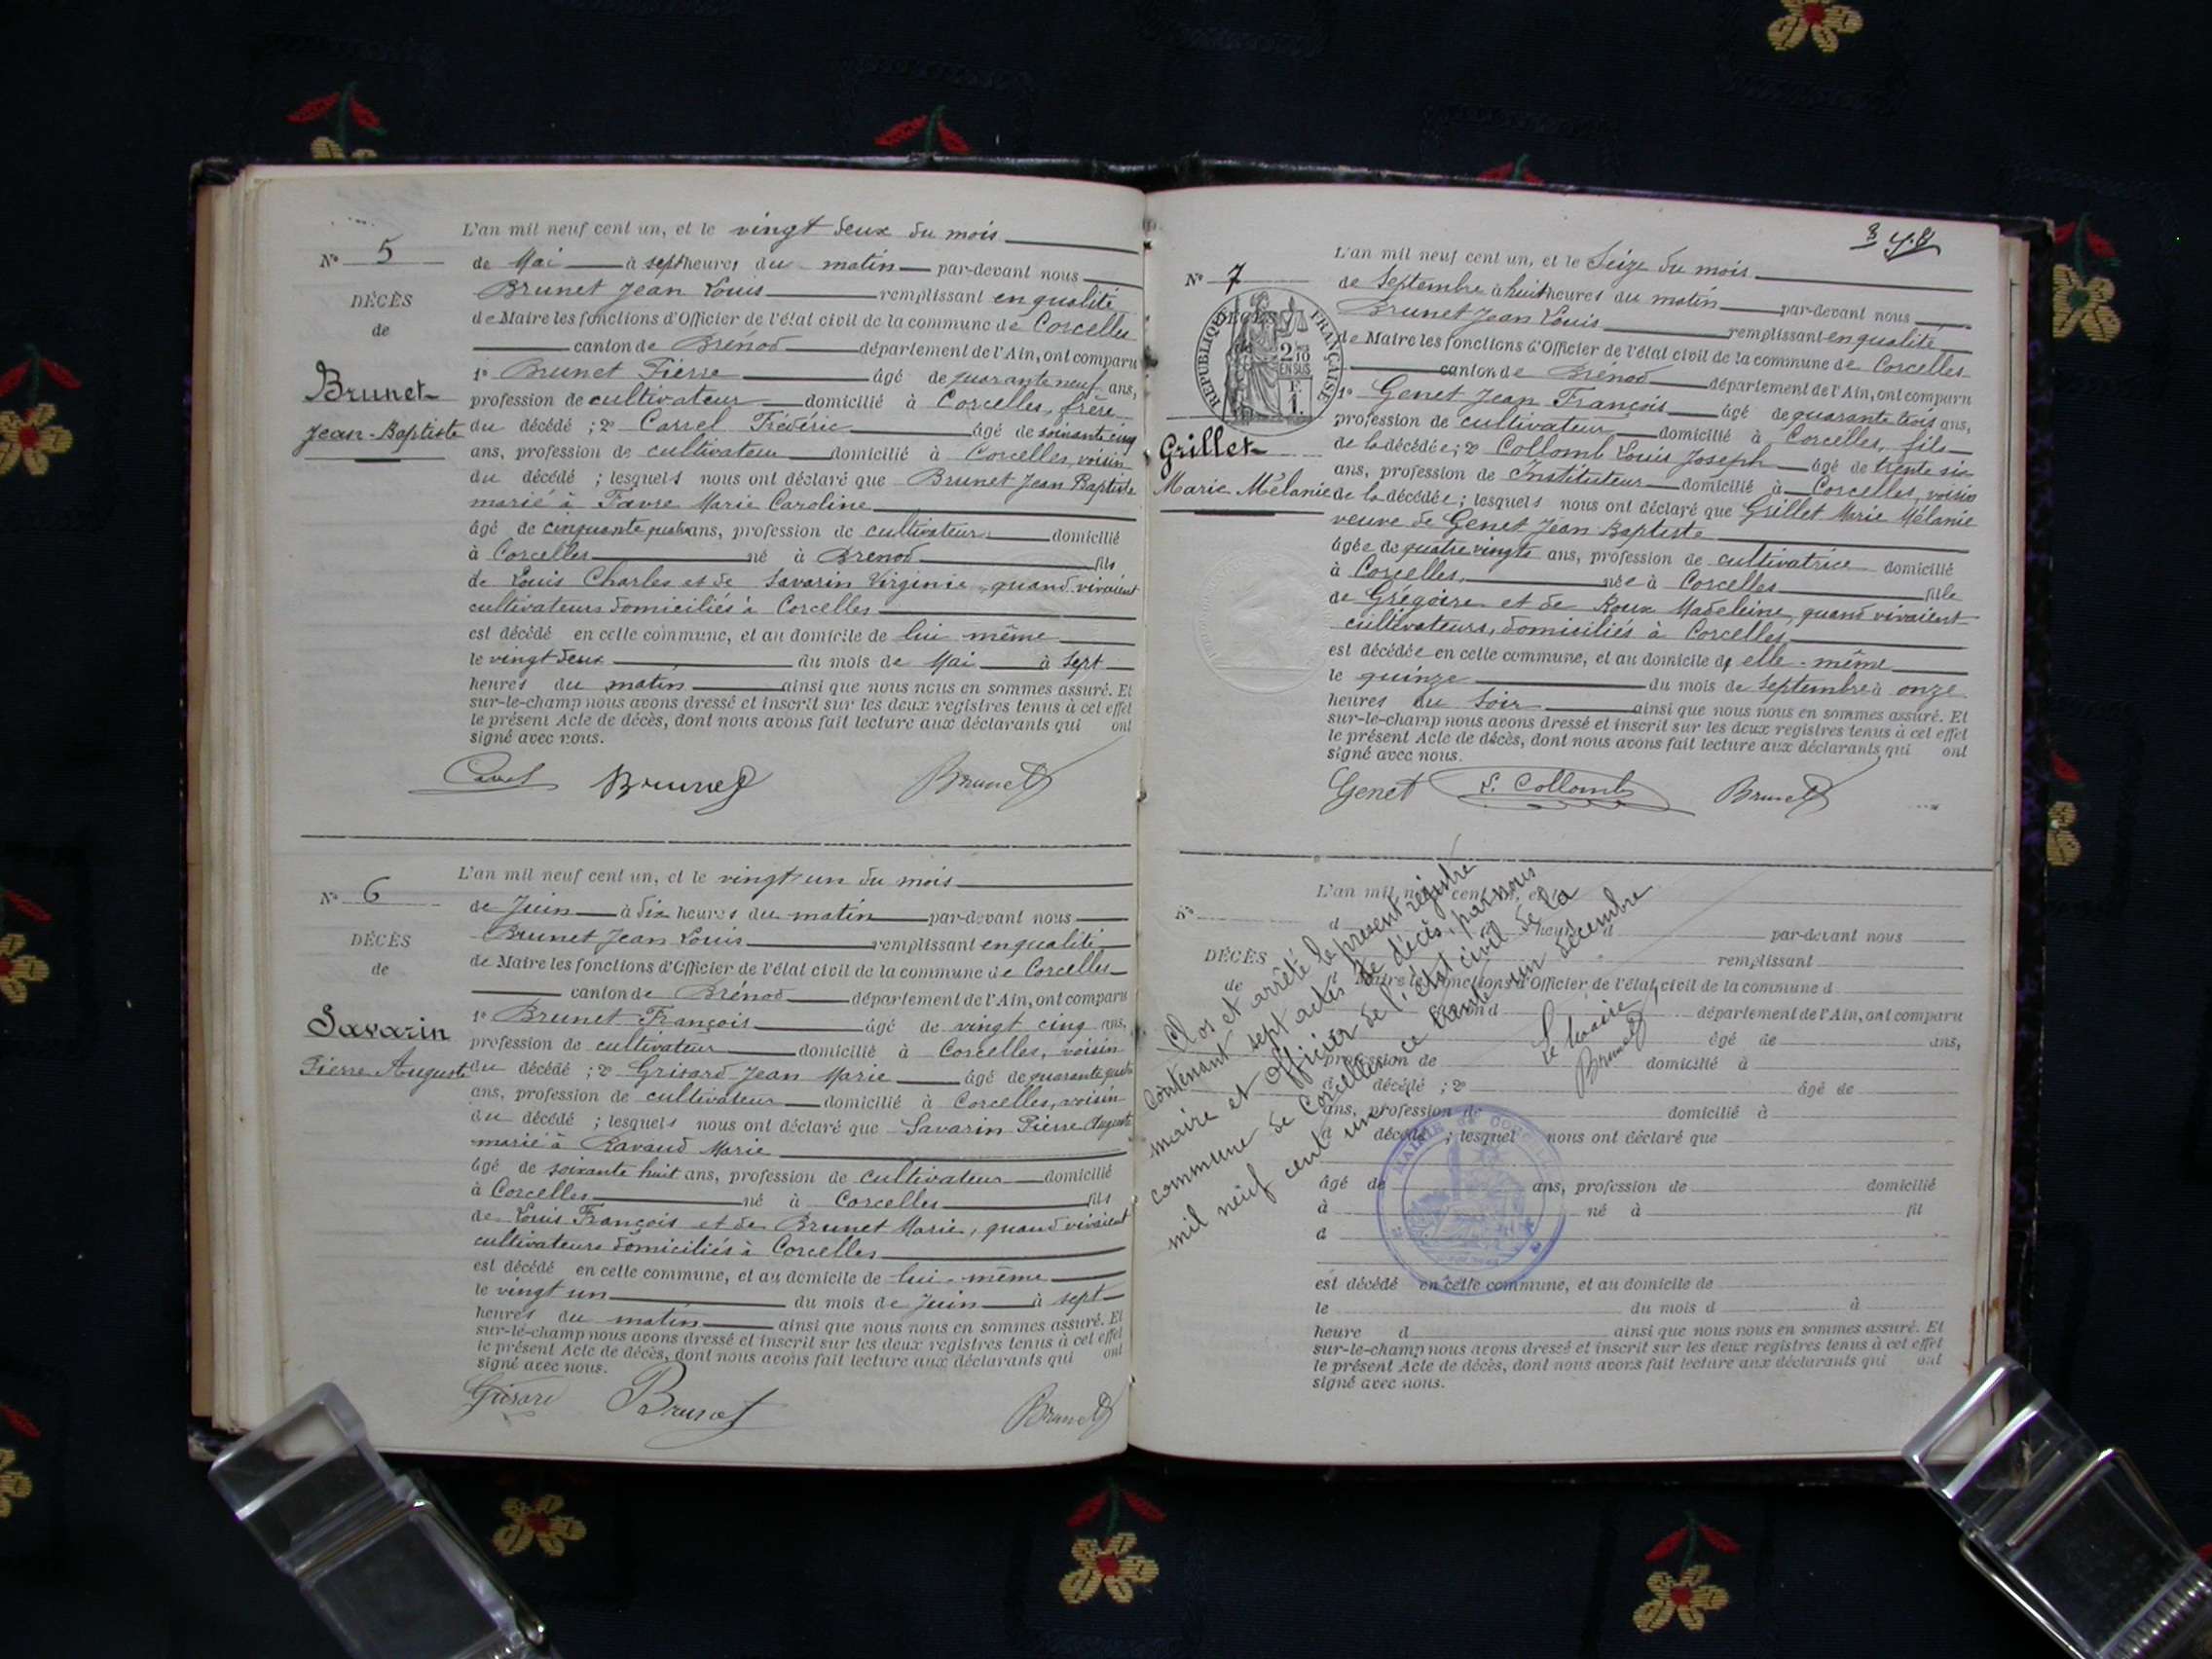 L'an mil neuf cent un, et le vingt deux du mois
N° 5
de Mai à sept heures du matin par-devant nous
DÉCÈS
Brunet Jean Louis remplissant en qualité
de
de Maire les fonctions d'Officier de l'état civil de la commune de Corcelles
canton de Brenod département de l'Ain, ont comparu
1° Brunet Pierre âgé de quarante neuf ans,
Brunet
profession de cultivateur domicilié à Corcelles, frère
Jean-Baptiste
du décédé ; 2° Carrel Frédéric âgé de soixante cinq
ans, profession de cultivateur domicilié à Corcelles, voisin
du décédé ; lesquels nous ont déclaré que Brunet Jean Baptiste
marié à Favre Marie Caroline
âgé de cinquante quatre ans, profession de cultivateur domicilié
à Corcelles né à Brenod fils
de Louis Charles et de Savarin Virginie, quand vivaient
cultivateurs domiciliés à Corcelles
est décédé en cette commune, et au domicile de lui même
le vingt deux du mois de Mai à sept
heures du matin ainsi que nous nous en sommes assuré. Et
sur-le-champ nous avons dressé et inscrit sur les deux registres tenus à cet effet
le présent Acte de décès, dont nous avons fait lecture aux déclarants qui ont
signé avec nous.
Carrel Brunet Brunet
L'an mil neuf cent un, et le vingt un du mois
N° 6
de Juin à dix heures du matin par-devant nous
DÉCÈS
Brunet Jean Louis remplissant en qualité
de
de Maire les fonctions d'Officier de l'état civil de la commune de Corcelles
canton de Brénod département de l'Ain, ont comparu
1° Brunet François âgé de vingt cinq ans,
Savarin
profession de cultivateur domicilié à Corcelles, voisin
Pierre Auguste
du décédé ; 2° Grisard Jean Marie âgé de quarante quatre
ans, profession de cultivateur domicilié à Corcelles, voisin
du décédé ; lesquels nous ont déclaré que Savarin Pierre Auguste
marié à Ravaud Marie
âgé de soixante huit ans, profession de cultivateur domicilié
à Corcelles né à Corcelles fils
de Louis François et de Brunet Marie, quand vivaient
cultivateurs domiciliés à Corcelles
est décédé en cette commune, et au domicile de lui-même
le vingt un du mois de Juin à sept
heures du matin ainsi que nous nous en sommes assuré. Et
sur-le-champ nous avons dressé et inscrit sur les deux registres tenus à cet effet
le présent Acte de décès, dont nous avons fait lecture aux déclarants qui ont
signé avec nous.
Grisard Brunet Brunet
L'an mil neuf cent un, et le Seize du mois
N° 7
de Septembre à huit heures du matin par-devant nous
DÉCÈS
Brunet Jean Louis remplissant en qualité
de
RÉPUBLIQUE FRANÇAISE
2/10 EN SUS
F. 1.
de Maire les fonctions d'Officier de l'état civil de la commune de Corcelles
canton de Brénod département de l'Ain, ont comparu
1° Genet Jean François âgé de quarante trois ans,
profession de cultivateur domicilié à Corcelles, fils
Grillet
de la décédée ; 2° Collomb Louis Joseph âgé de trente six
ans, profession de Instituteur domicilié à Corcelles, voisin
Marie Mélanie
de la décédée ; lesquels nous ont déclaré que Grillet Marie Mélanie
veuve de Genet Jean Baptiste
âgée de quatre vingts ans, profession de cultivatrice domicilié
à Corcelles, née à Corcelles fille
de Grégoire et de Roux Madeleine, quand vivaient
cultivateurs, domiciliés à Corcelles
est décédée en cette commune, et au domicile de elle-même
le quinze du mois de Septembre à onze
heures du Soir ainsi que nous nous en sommes assuré. Et
sur-le-champ nous avons dressé et inscrit sur les deux registres tenus à cet effet
le présent Acte de décès, dont nous avons fait lecture aux déclarants qui ont
signé avec nous.
Genet L. Collomb Brunet
L'an mil neuf cent un, et le
N°
d heure d par-devant nous
DÉCÈS
remplissant
de
d Maire les fonctions d'Officier de l'état civil de la commune d
canton d département de l'Ain, ont comparu
âgé de ans,
profession de domicilié à
d décédé ; 2° âgé de
ans, profession de domicilié à
d décédé ; lesquel nous ont déclaré que
âgé de ans, profession de domicilié
à né à fil
d
est décédé en cette commune, et au domicile de
le du mois d à
heure d ainsi que nous nous en sommes assuré. Et
sur-le-champ nous avons dressé et inscrit sur les deux registres tenus à cet effet
le présent Acte de décès, dont nous avons fait lecture aux déclarants qui ont
signé avec nous.
Clos et arrêté le présent registre
contenant sept actes de décès, par nous
maire et officier de l'état civil de la
commune de Corcelles ce trente un décembre
mil neuf cent un
Le maire,
Brunet
MAIRIE de